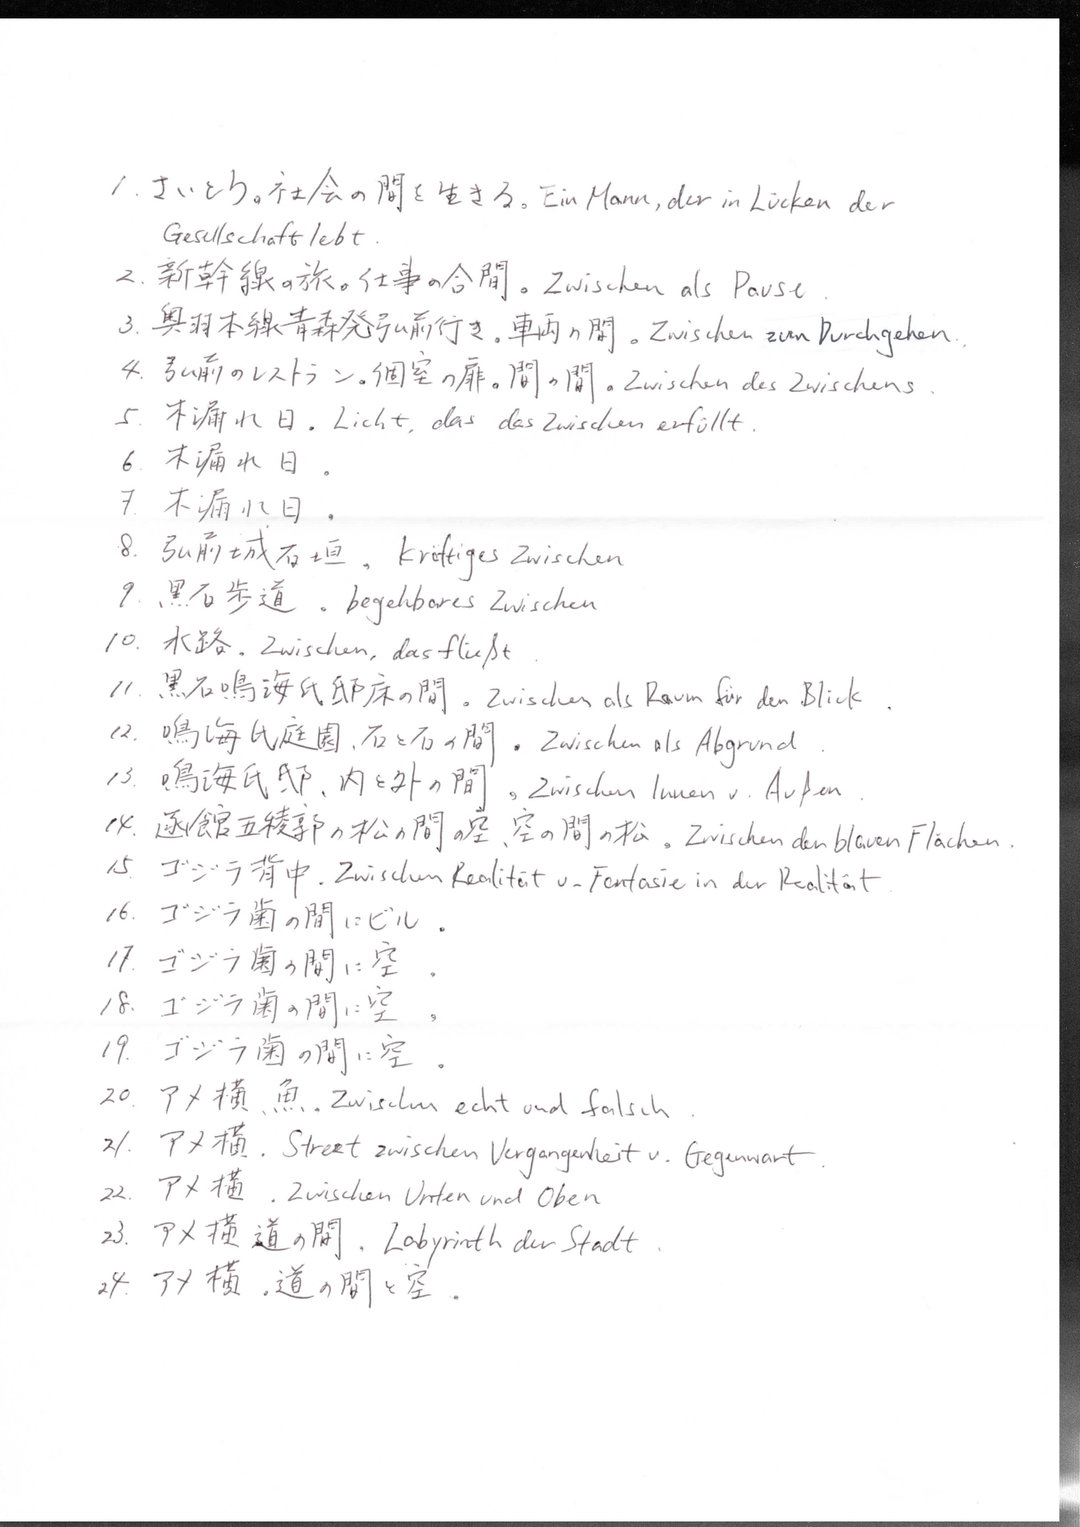 1. さいとう。社会の間を生きる。Ein Mann, der in Lücken der
Gesellschaft lebt.
2. 新幹線の旅。仕事の合間。Zwischen als Pause.
3. 奥羽本線青森発弘前行き。車両の間。Zwischen zum Durchgehen.
4. 弘前のレストラン。個室の扉。間の間。Zwischen des Zwischens.
5. 木漏れ日。Licht, das das Zwischen erfüllt.
6. 木漏れ日。
7. 木漏れ日。
8. 弘前城石垣。kräftiges Zwischen
9. 黒石歩道。begehbares Zwischen
10. 水路。Zwischen, das fließt.
11. 黒石鳴海氏邸床の間。Zwischen als Raum für den Blick.
12. 鳴海氏庭園、石と石の間。Zwischen als Abgrund.
13. 鳴海氏邸、内と外の間。Zwischen Innen u. Außen.
14. 函館五稜郭の松の間の空、空の間の松。Zwischen den blauen Flächen.
15. ゴジラ背中。Zwischen Realität u. Fantasie in der Realität.
16. ゴジラ歯の間にビル。
17. ゴジラ歯の間に空。
18. ゴジラ歯の間に空。
19. ゴジラ歯の間に空。
20. アメ横、魚。Zwischen echt und falsch.
21. アメ横。Street zwischen Vergangenheit u. Gegenwart.
22. アメ横。Zwischen Unten und Oben
23. アメ横道の間。Labyrinth der Stadt.
24. アメ横。道の間と空。